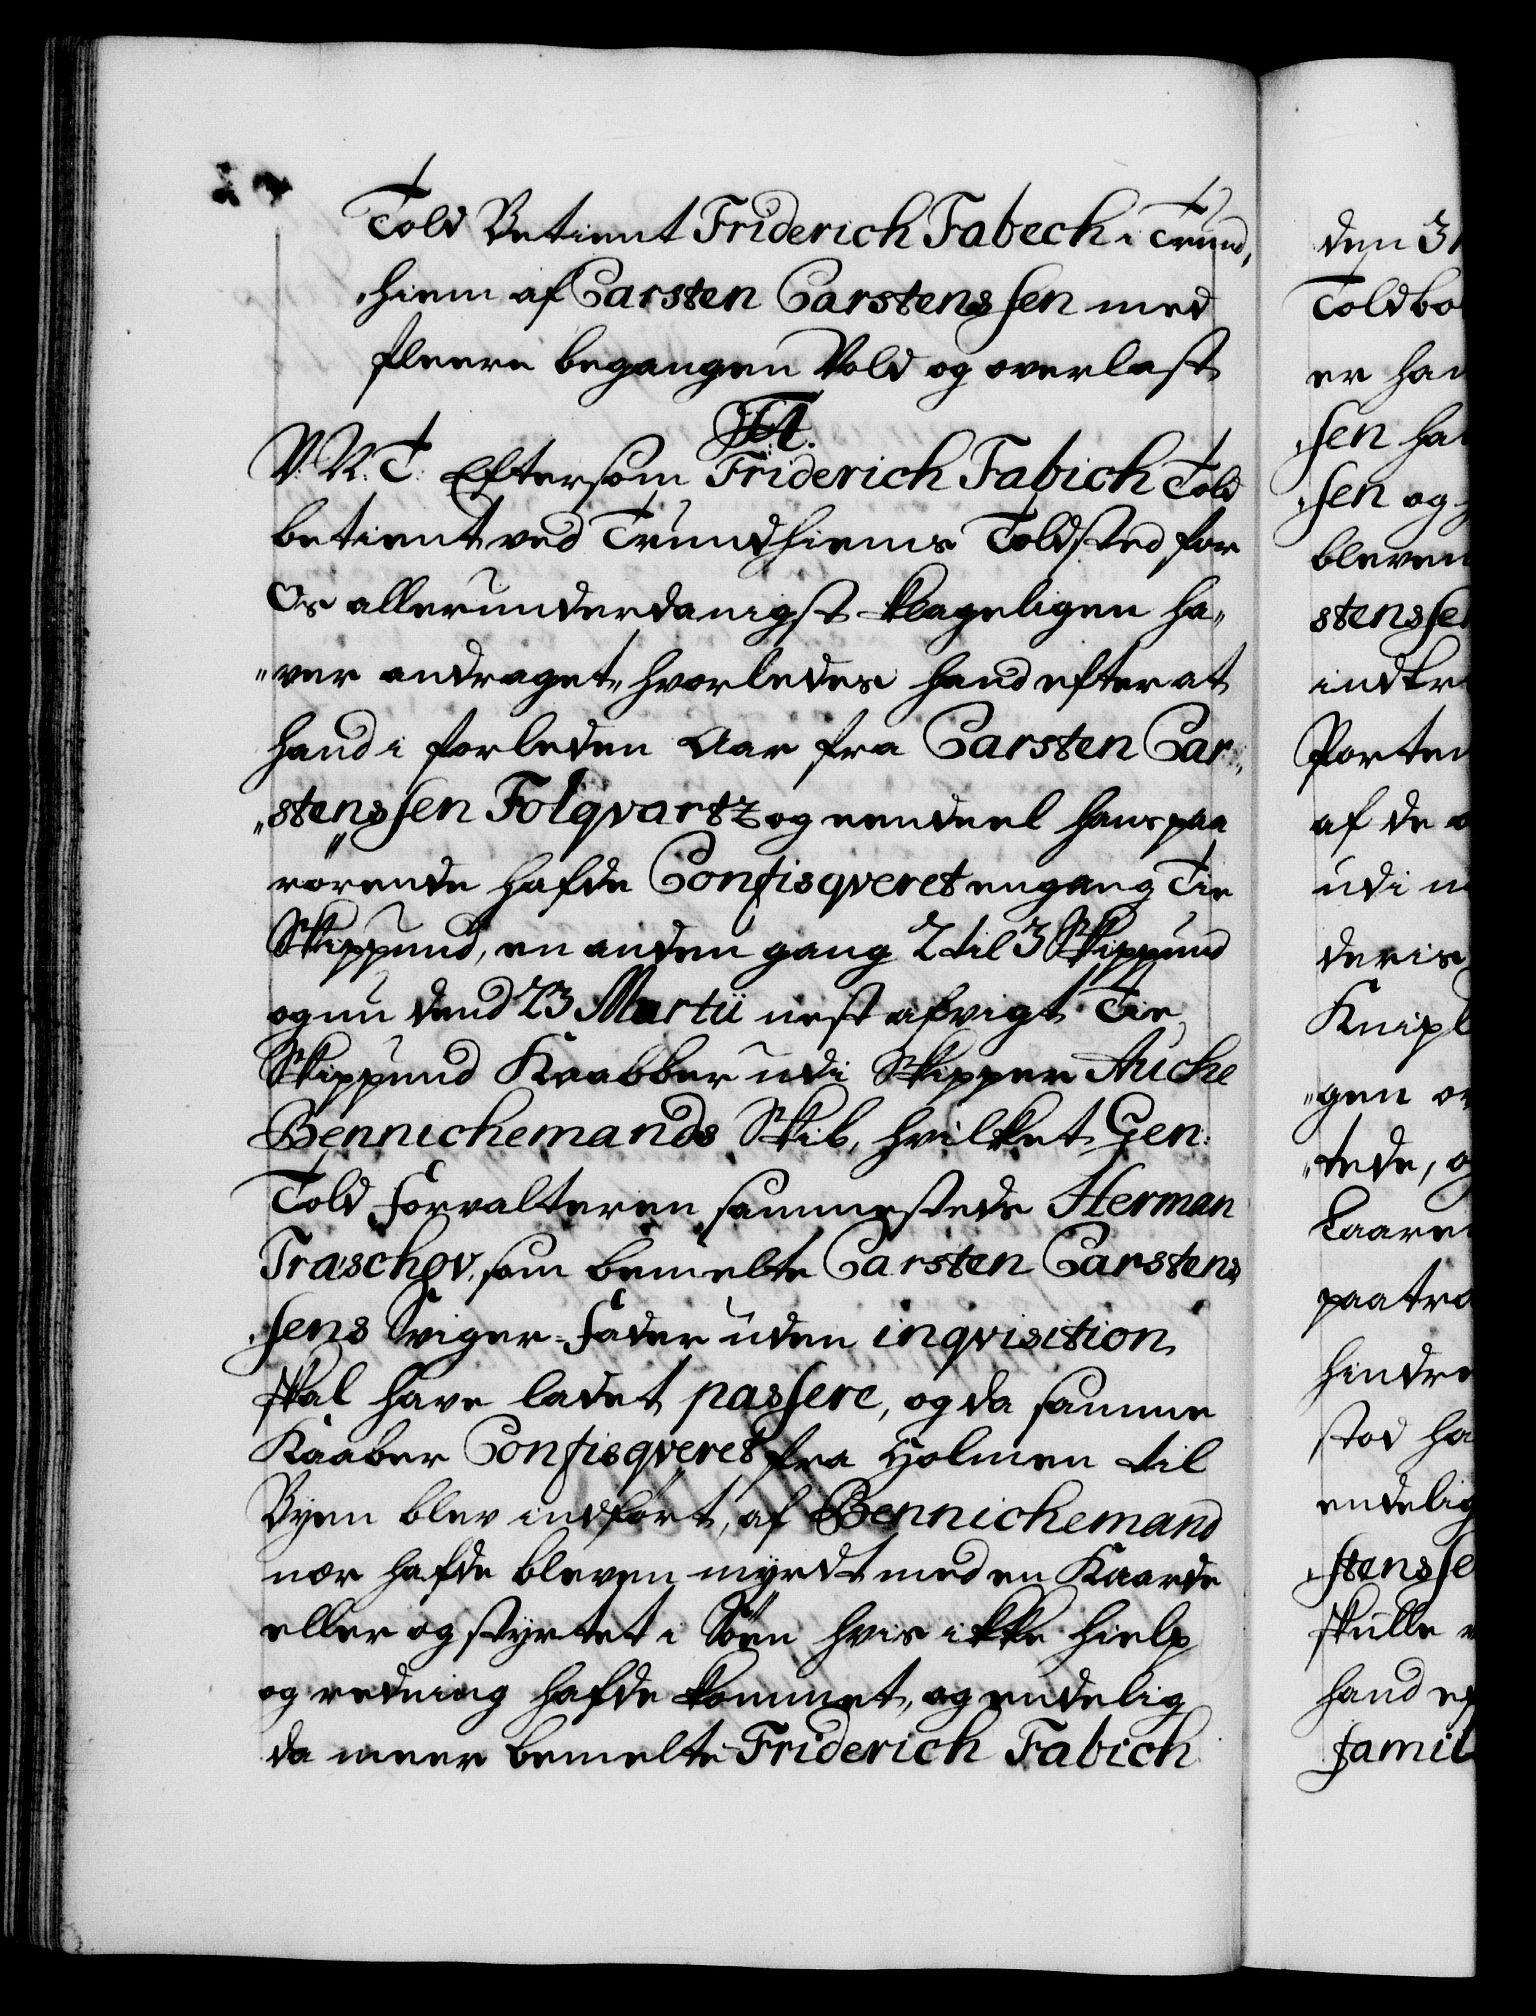 Told Betient Friderich Fabech i Trund„
„hiem af Carsten Carstenssen med
fleere begangen Vold og overlast
F4.
V. R. T. Eftersom Friderich Fabich Told
betient ved Trundhiems Toldsted for
Os allerunderdanigst klageligen ha„
„ver andraget, hvorledes hand efter at
hand i forleden Aar fra Carsten Car„
„stenssen Folqvartz og eendeel hans paa
rørende hafde Confisqveret engang Tie
Skippund, en anden gang 2 til 3 Skippund
og nu dend 23 Martii nest afvigt Tie
Skippund Kaabber udi Skipper Auche
Bennichemands Skib, hvilket Gen:
Told Forvalteren sammesteds Herman
Traschov, som bemelte Carsten Carstens
„sens Sviger-Fader uden inqvisition
skal have ladet passere, og da samme
Kaaber Confisqveret fra Holmen til
Byen blev indført, af Bennichemand
nær hafde bleven myrdt med en Kaarde
eller og styrtet i Søen hvis ikke hielp
og redning hafde kommet, og endelig
da meer bemelte Friderich Fabich
den 31
Toldbo
er han
sen ha
„sen og
bleven
stensse
indkr
Porten
af de
udi
deris
Knipl
„gen
„tede, og
Kaare
paatra
hindre
stod ha
endelig
„stensse
skulle
hand ef
famil